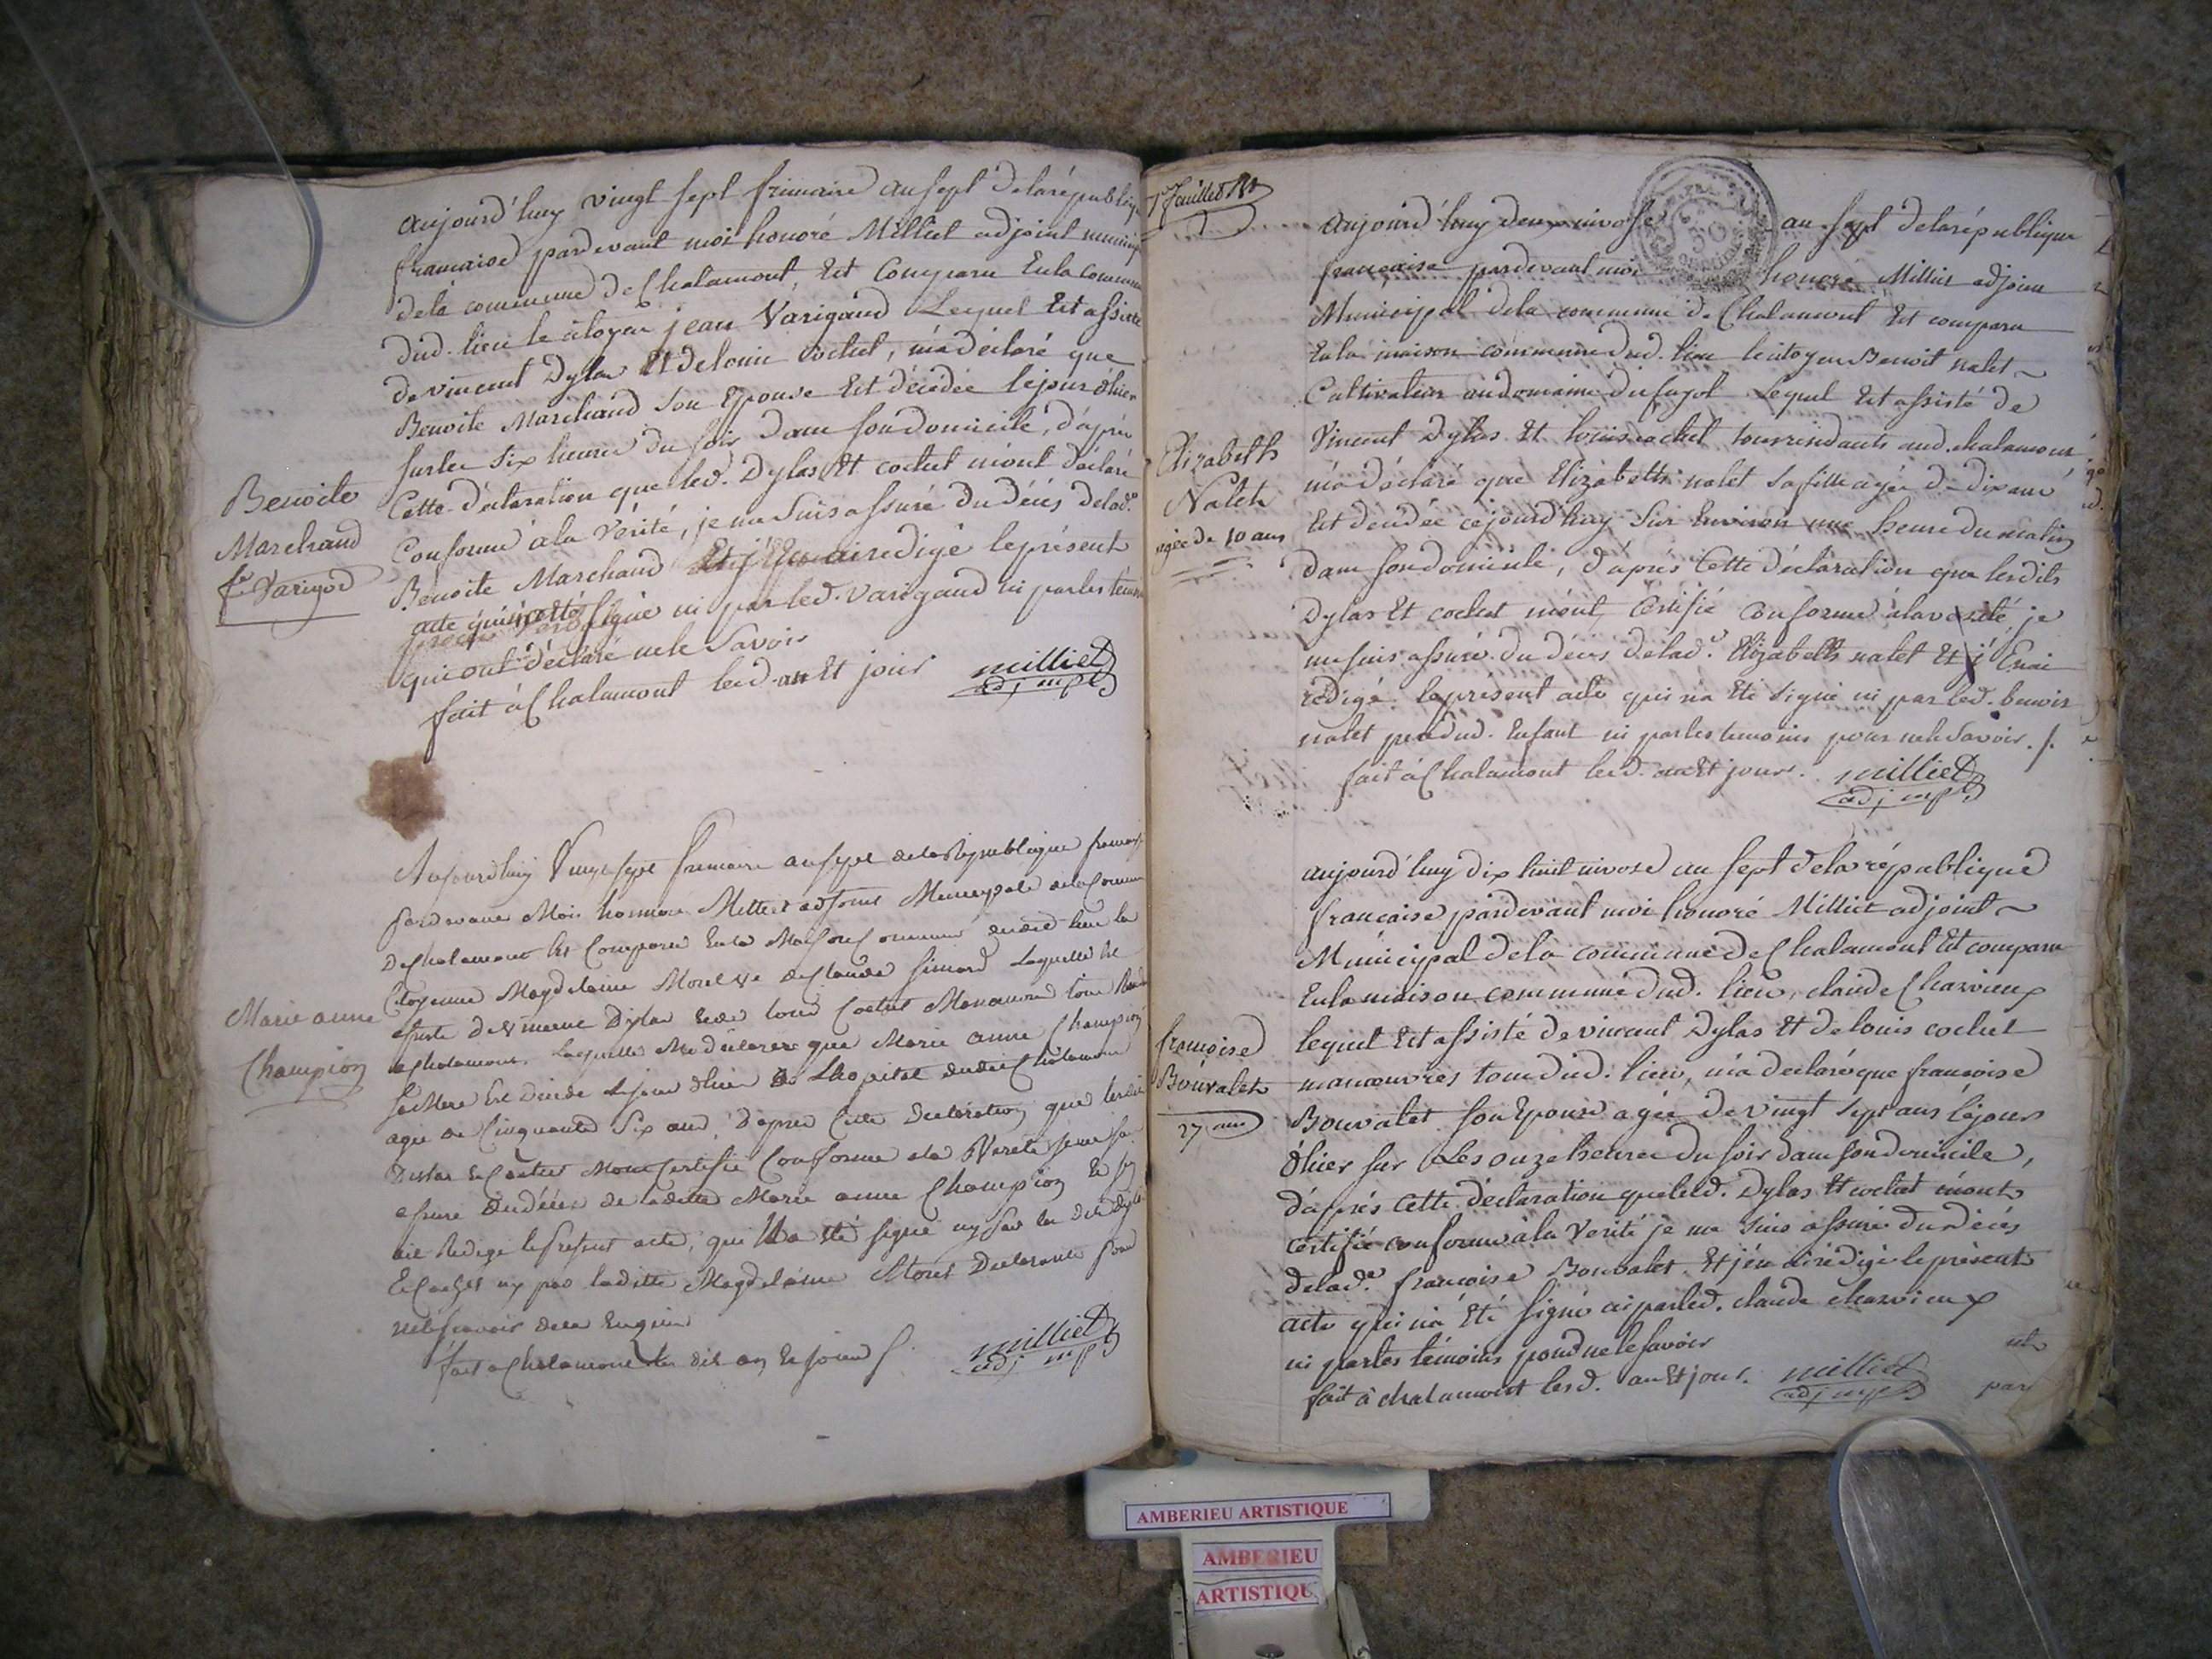 Aujourd'huy vingt sept frimaire an sept de la républiq
francaise pardevant moi honoré Milliet adjoint municip
de la commune de Chalamont, Est Comparu En la commune
dud. lieu le citoyen jean Varigaud Lequel Est assisté
de vincent Dylas Et de louis cochet, m'a déclaré que
Benoite Marchand Son Epouse Est décédée le jour d'hier
sur les six heures du soir dans son domicile, d'après
Cette déclaration que led. Dylas Et cochet m'ont déclaré
Conforme à la Vérité, je me suis assuré du décès de lad.e
Benoite Marchand Et j'En ai redigé le présent
acte qui n'a été
signé ni par led. varigaud ni par les témoins
qui ont déclaré ne le Savoir
fait à Chalamont lesd. an Et jour
milliet
adj mpl
Benoite
Marchand
f.e Varigod
Aujourdhuy Vingt sept frimaire an sept de la Republique francais
Pardevant Moi honnoré Milliet adjoint Municypale de la Commune
De Chalamont Est Comparue En la Maison Commune dudit lieu la
Citoyenne Magdelaine Morel Ve de Claude Simard Laquelle Est
assisté de Vincent Dylas Et de louis Cochet Manouvre tous
a Chalamont. Laquelle Ma déclarer que Marie anne Champion
Sa Mere Est Décédé le jour d'hier a Lhopital dudit Chalamont
agée de Cinquante Six ans, D'apres Cette Declaration que lesdits
Dislas Et Cochet Mont Certifié Conforme a la Verité je me suis
assuré du décès de ladite Marie anne Champion Et j'en
ait Redigé le présent acte, qui N'a Eté signé ny par les dits Dyla
Et Cochet ny par ladite Magdelaine Morel Declarante pour
ne le scavoir de ce Enquis
fait a Chalamont les dit an Et jour
milliet
adj mpl
Marie anne
Champion
7e feuillet
aujourd'huy deux nivose an sept de la république
française pardevant moi honoré Milliet adjoint
Municipal de la commune de Chalamont Est comparu
En la maison commune dud. lieu le citoyen Benoit nalet
Cultivateur au domaine du fayol Lequel Est assisté de
Vincent Dylas Et louis cochet tous residants aud. chalamont
m'a déclaré que Elizabeth nalet sa fille agée de dix ans
Est decédée cejourd'huy Sur Environ une heure du matin
dans son domicile, d'après Cette déclaration que lesdits
Dylas Et cochet m'ont Certifié conforme à la verité, je
me suis assuré du décès de lad.e Elizabeth nalet Et j'En ai
rédigé le présent acte qui n'a Eté signé ni par led. benoit
nalet père dud. Enfant ni par les temoins pour ne le Savoir. /.
fait à Chalamont lesd. an Et jour.
milliet
adj mpl
Elizabeth
Nalet
agée de 10 ans
aujourd'huy dix huit nivose an sept de la république
francaise pardevant moi honoré Milliet adjoint
Municipal de la commune de Chalamont Est comparu
En la maison commune dud. lieu, claude Charvieux
lequel Est assisté de vincent Dylas Et de louis cochet
manoeuvres tous dud. lieu, m'a déclaré que francoise
Bouvalet son Epouse agée de vingt sept ans le jour
d'hier sur Les onze heures du soir dans son domicile,
d'après cette déclaration que lesd. Dylas Et cochet m'ont
certifié conforme à la verité je me suis assuré du décès
de lad.e francoise Bouvalet Et j'en ai rédigé le présent
acte qui n'a Eté signé ni par led. claude charvieux
ni par les témoins pour ne le savoir
fait à chalamont lesd. an Et jour.
milliet
adj mpl
francoise
Bouvalet
27 ans
par
AMBERIEU ARTISTIQUE
AMBERIEU
ARTISTIQU